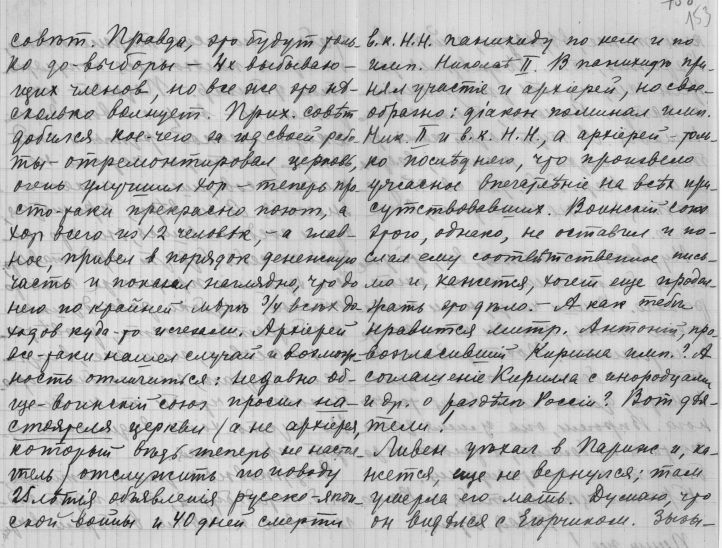 153
совѣт. Правда, это будут толь-
ко до-выборы – 4х выбываю-
щих членов, но все же это нѣ-
сколько волнует. Прих. совѣт
добился кое-чего за год своей рабо-
ты – отремонтировал церковь,
очень улучшил хор – теперь про-
сто-таки прекрасно поют, а
хор всего из 12 человѣк, – а глав-
ное, привел в порядок денежную
часть и показал наглядно, что до
него по крайней мѣрѣ 3/4 всѣх до-
ходов куда-то исчезали. Архіерей
все-таки нашел случай и возмож-
ность отличиться: недавно об-
ще-воинскій союз просил на-
стоятеля церкви (а не архіерея,
который вѣдь теперь не настоя-
тель) отслужить по поводу
25лѣтія объявленія русско-япон-
ской войны и 40 дней смерти
в.к. Н.Н. панихиду по нем и по
имп. Николаѣ II. В панихидѣ при-
нял участіе и архіерей, но свое-
образно: діакон поминал имп.
Ник. II и в.к. Н.Н., а архіерей – толь-
ко послѣдняго, что произвело
ужасное впечатлѣніе на всѣх при-
сутствовавших. Воинскій союз
этого, однако, не оставил и по-
слал ему соотвѣтственное пись-
мо и, кажется, хочет еще продол-
жать это дѣло. – А как тебѣ
нравится митр. Антоній, про-
возгласившій Кирилла имп.? А
соглашеніе Кирилла с инородцами
и др. о раздѣлѣ Россіи? Вот дѣя-
тели!
Ливен уѣхал в Париж и, ка-
жется, еще не вернулся; там
умерла его мать. Думаю, что
он видѣлся с Егорчиком.